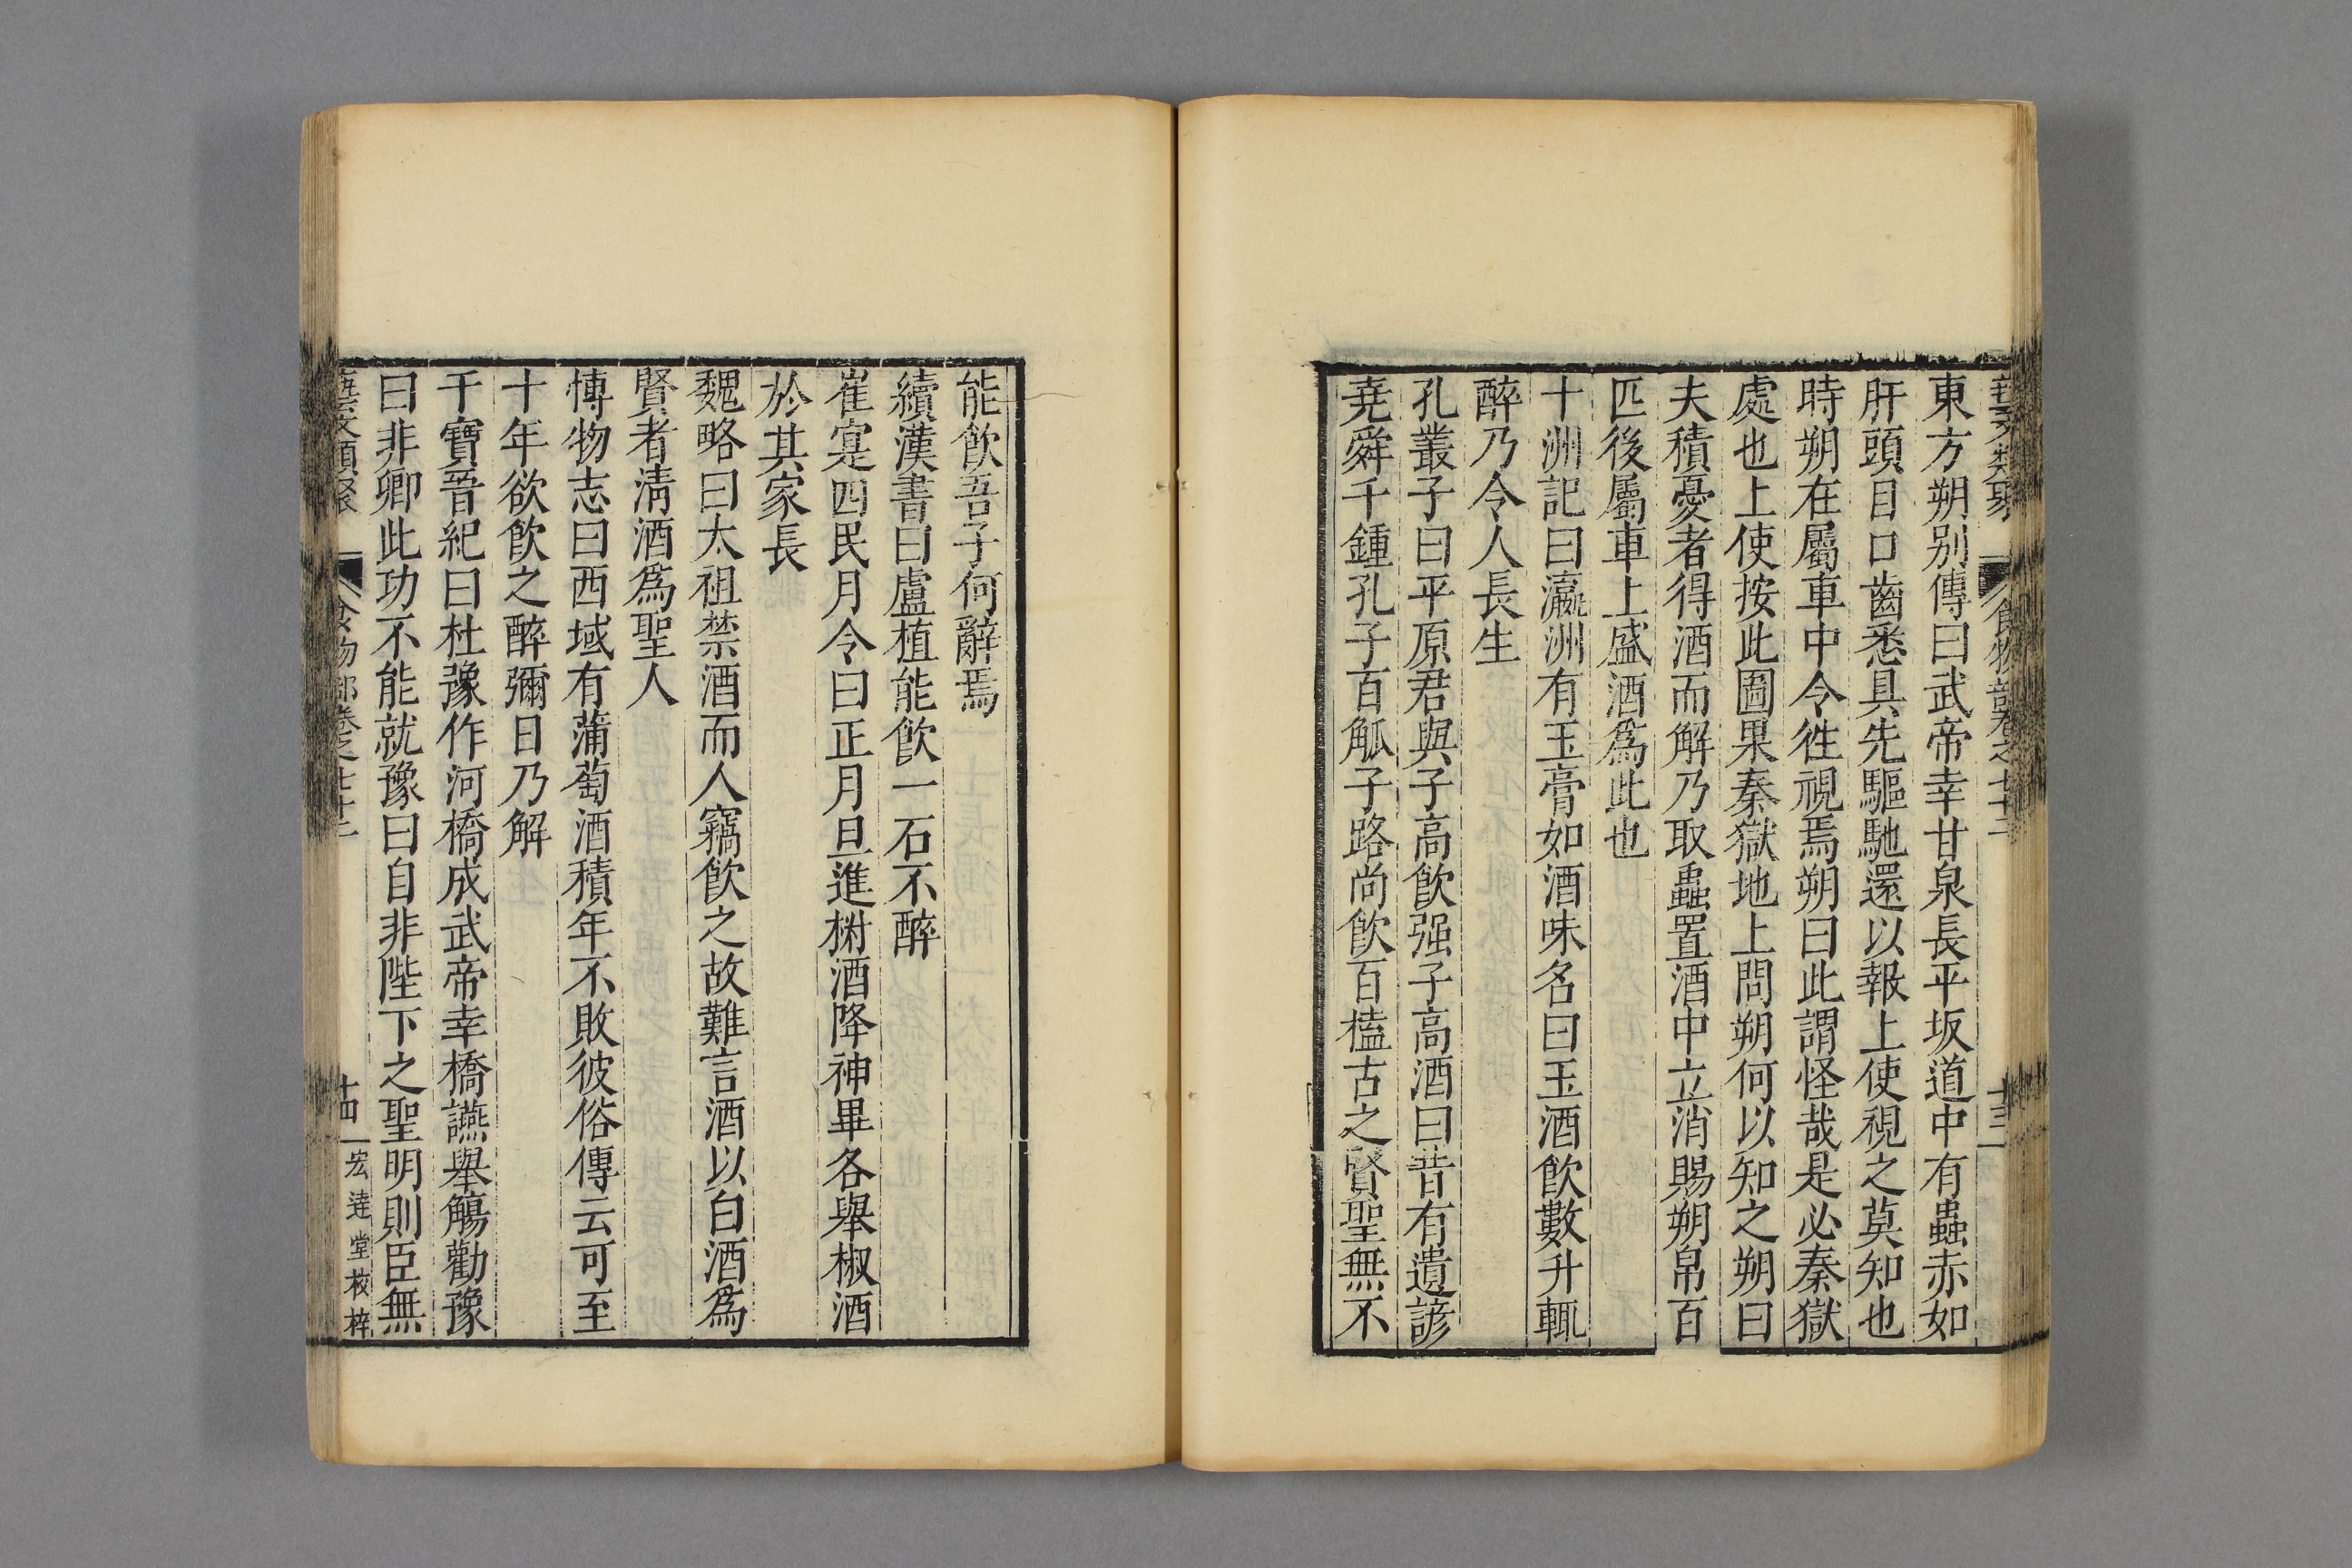 藝文類聚 食物部卷之七十二 十三
東方朔别傳曰武帝幸甘泉長平坂道中有蟲赤如
肝頭目口齒悉具先驅馳還以報上使視之莫知也
時朔在屬車中令徃視焉朔曰此謂怪哉是必秦獄
處也上使按此圖果秦獄地上問朔何以知之朔曰
夫積憂者得酒而解乃取蟲置酒中立消賜朔帛百
匹後屬車上盛酒爲此也
十洲記曰瀛洲有玉膏如酒味名曰玉酒飲數升輒
醉乃令人長生
孔叢子曰平原君與子高飲强子高酒曰昔有遺諺
尭舜千鍾孔子百觚子路尚飲百榼古之賢聖無不
能飲吾子何辭焉
續漢書曰盧植能飲一石不醉
崔寔四民月令曰正月旦進椒酒降神畢各舉椒酒
於其家長
魏略曰太祖禁酒而人竊飲之故難言酒以白酒爲
賢者淸酒爲聖人
愽物志曰西域有蒲萄酒積年不敗彼俗傳云可至
十年欲飲之醉彌日乃解
干寶晉紀曰杜豫作河橋成武帝幸橋讌舉觴勸豫
曰非卿此功不能就豫曰自非陛下之聖明則臣無
藝文類聚 食物部卷之七十二 十四 宏逹堂校梓